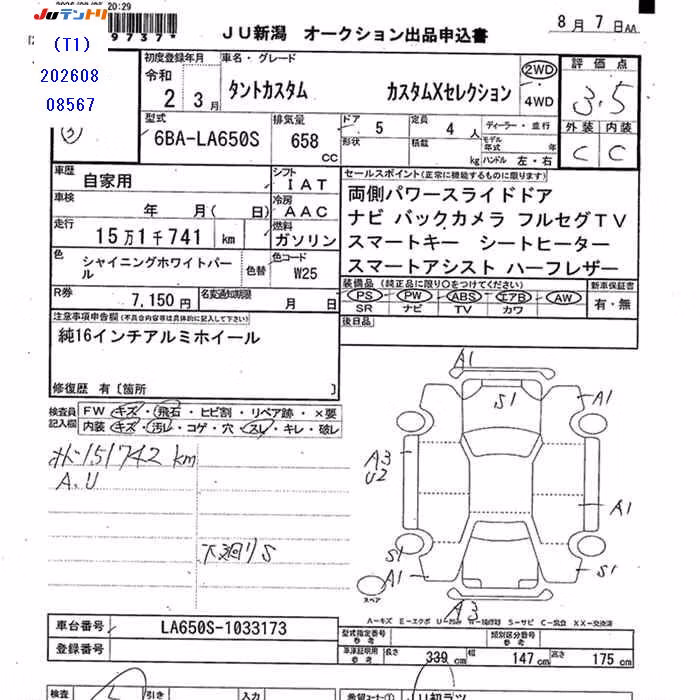 20:29
JUテントリ
9737
(T1)
202608
08567
JU新潟 オークション出品申込書
8月7日AA
初度登録年月
令和
2 3月
車名・グレード
タントカスタム カスタムXセレクション
2WD
4WD
評価点
3.5
外装 内装
C C
型式
6BA-LA650S
排気量
658 CC
ドア
5
定員
4人
ディーラー・並行
形状
積載
kg
モデル年式 年
ハンドル 左・右
車歴
自家用
シフト
IAT
車検
年 月( 日)
冷房
AAC
走行
15万1千741 km
燃料
ガソリン
色
シャイニングホワイトパール
色替
色コード
W25
R券
7,150円
名変通知期限
月 日
セールスポイント(正常に機能するものに限ります)
両側パワースライドドア
ナビ バックカメラ フルセグTV
スマートキー シートヒーター
スマートアシスト ハーフレザー
装備品 (純正品に限り○をつけてください)
PS PW ABS エアB AW
SR ナビ TV カワ
新車保証書
有・無
後日品
注意事項申告欄(不具合内容等は具体的に記入して下さい)
純16インチアルミホイール
修復歴 有〔箇所 〕
検査員記入欄
FW キズ・飛石・ヒビ割・リペア跡・×要
内装 キズ・汚レ・コゲ・穴・スレ・キレ・破レ
151742 km
A.U
下廻りS
A1
S1
A1
A3
U2
A1
S1
A1
S1
A3
スペア
A-キズ E-エクボ U-凹み W-補修跡 S-サビ C-腐食 XX-交換済
車台番号
LA650S-1033173
登録番号
型式指定番号 参考
類別区分番号 参考
車庫証明用 参考
長さ 339 cm
幅 147 cm
高さ 175 cm
検査
引き
入力
希望コーナー①
JU初ラツ